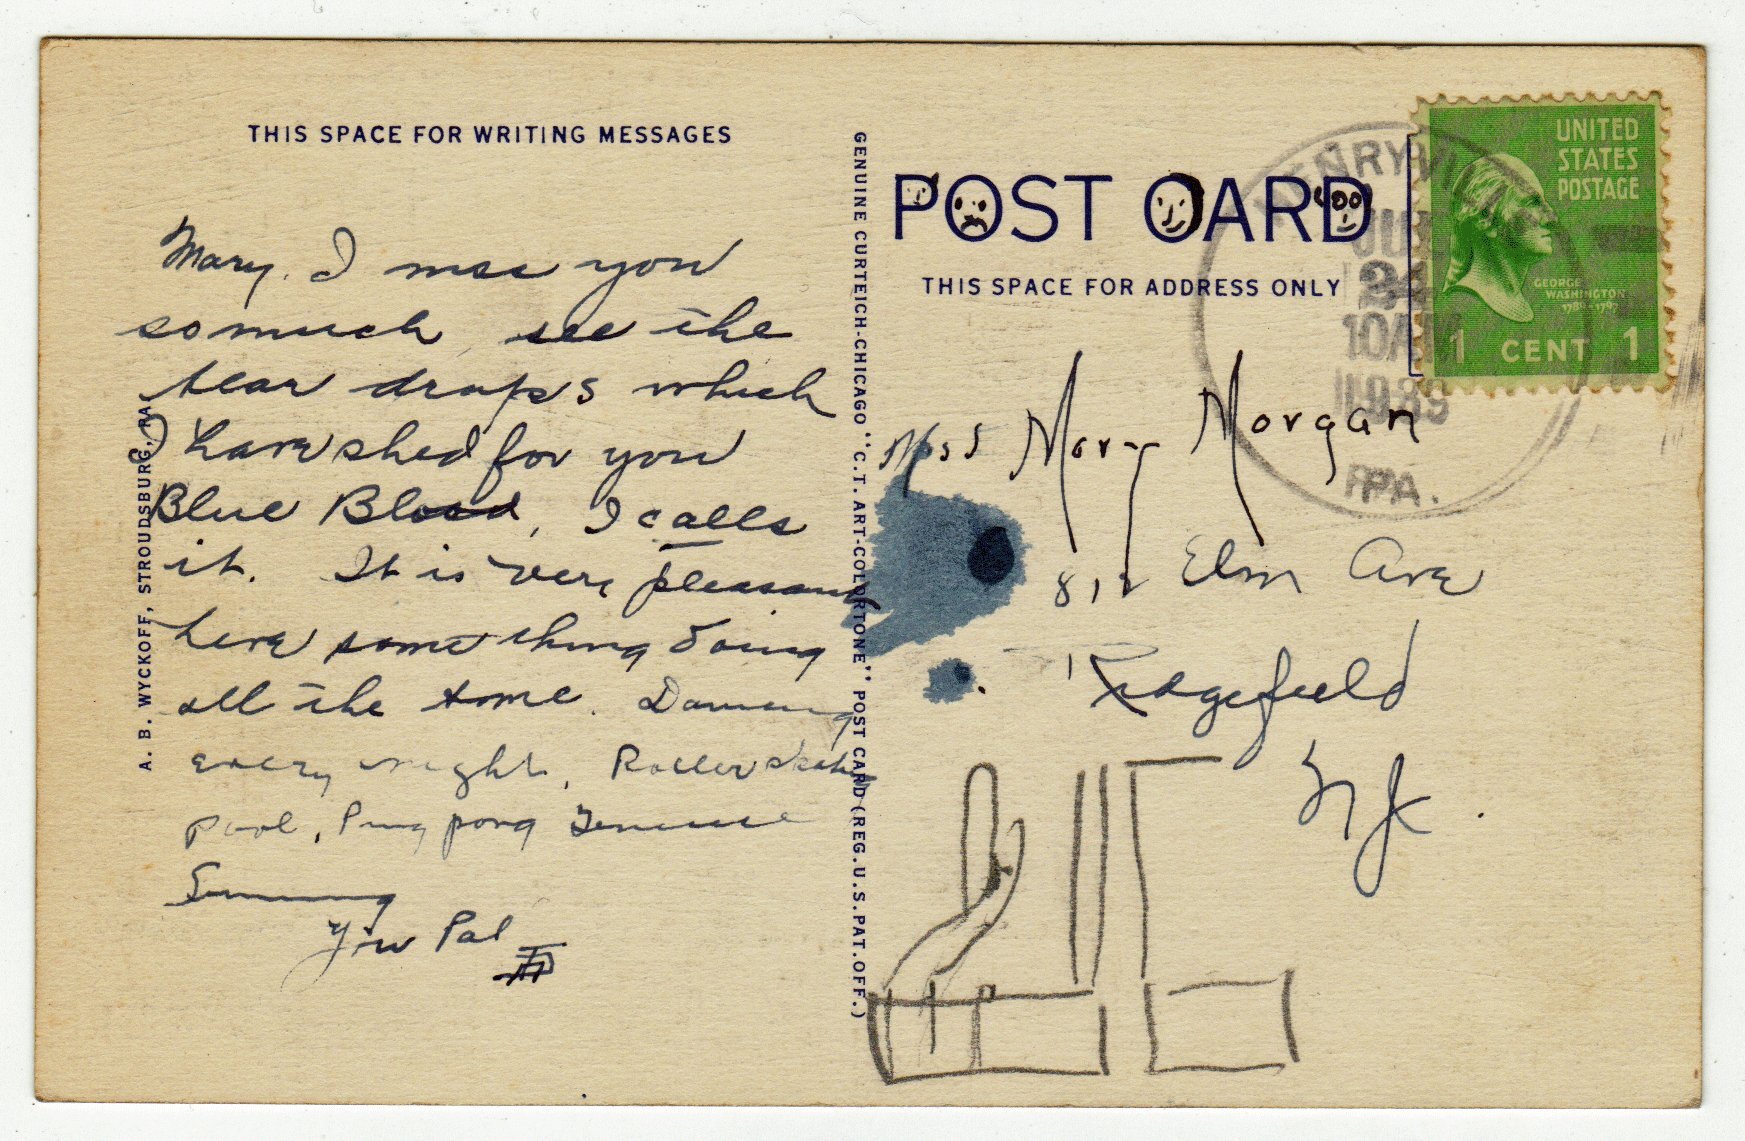 THIS SPACE FOR WRITING MESSAGES
Mary. I miss you
so much see the
tear drops which
I have shed for you
Blue Blood, I calls
it. It is very pleasant
here something doing
all the time. Dancing
every night, Roller skating
pool, Ping pong Tennis
Swimming
Yiw Pal
A. B. WYCKOFF, STROUDSBURG, PA.
GENUINE CURTEICH-CHICAGO "C.T. ART-COLORTONE" POST CARD (REG. U.S. PAT. OFF.)
POST CARD
THIS SPACE FOR ADDRESS ONLY
HENRYVILLE
24
10AM
1939
PA.
UNITED
STATES
POSTAGE
GEORGE
WASHINGTON
1 CENT 1
Miss Mary Morgan
812 Elm Ave
Ridgefield
N J.